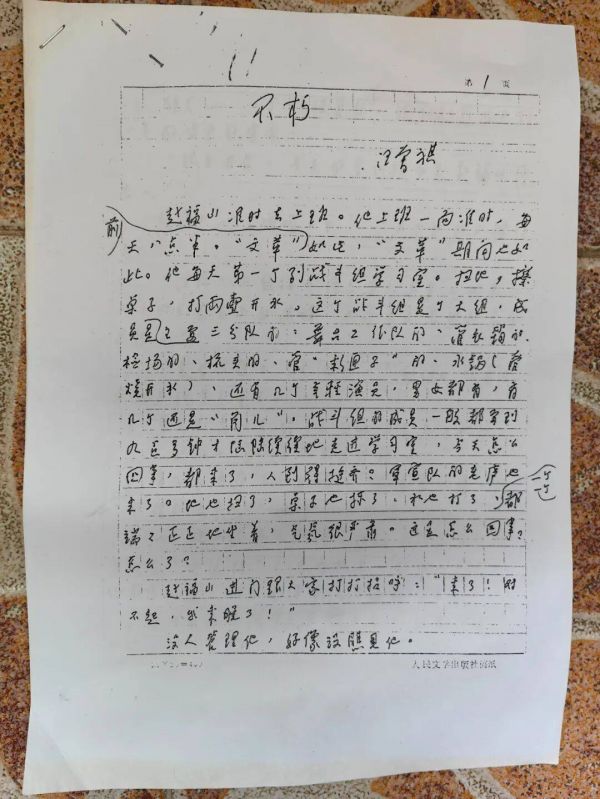 第1页
不朽
汪曾祺
赵福山准时去上班。他上班一向准时,每
前
天八点半。“文革”如此,“文革”期间也如
此。他每天第一个到战斗组学习室。扫地,擦
桌子,打两壶开水。这个战斗组是个大组,成
员是三分队的:舞台工作队的、管衣箱的、
检场的、抗美的、管“彩匣子”的、水锅(管
烧开水),还有几个年轻演员,男女都有,有
几个还是“角儿”。战斗组的成员一般都要到
九点多钟才陆陆续续地走进学习室,今天怎么
回事,都来了,人到得挺齐?军宣队的老卢也
来了。地也扫了,桌子也擦了,水也打了,都
一个个
端端正正地坐着,气氛很严肃。这是怎么回事?
怎么了?
赵福山进门跟大家打打招呼:“来了!对
不起,我来晚了!”
没人答理他,好像没瞧见他。
人民文学出版社稿纸